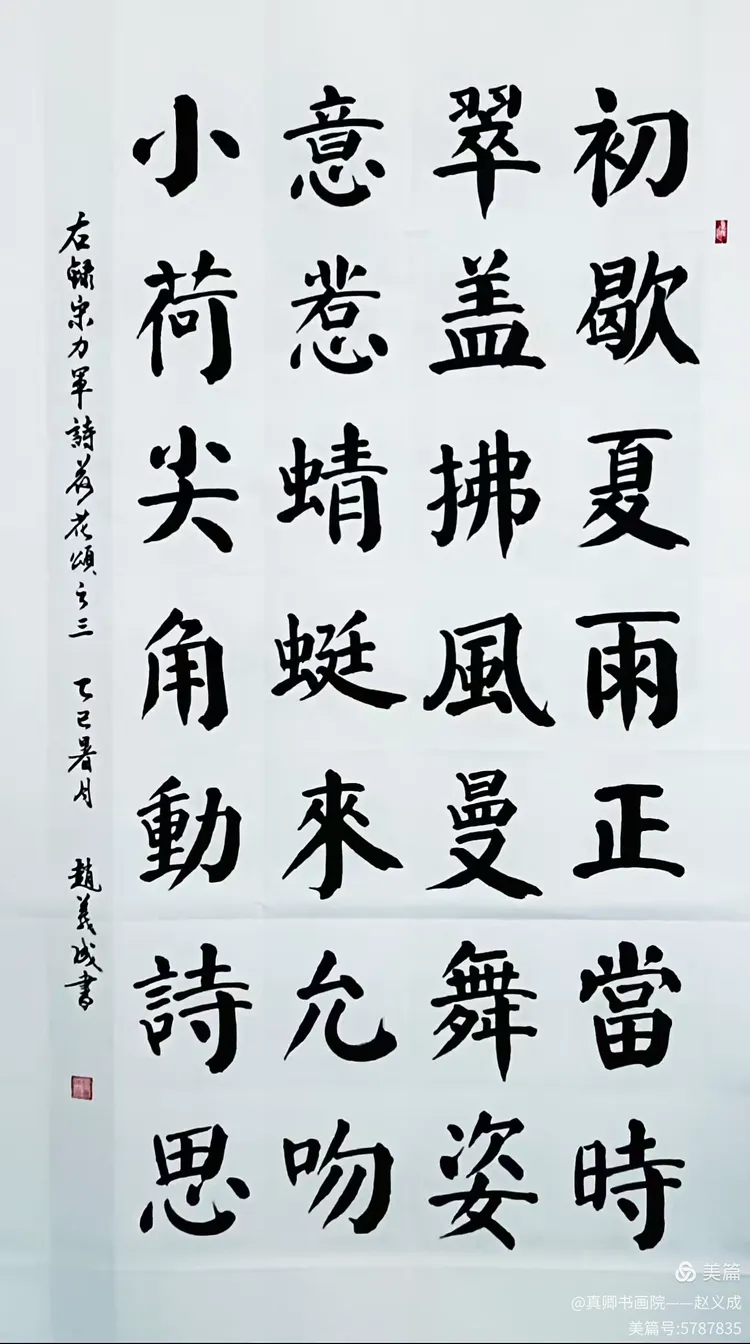 初歇夏雨正當時
翠盖拂風曼舞姿
意惹蜻蜓來允吻
小荷尖角動詩思
右録宋力軍詩荷花頌之三 乙巳暑月 趙義成書
美篇
@真卿书画院——赵义成
美篇号:5787835